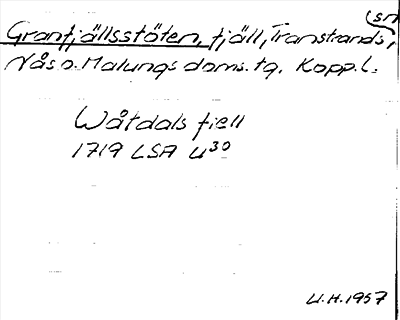 (sn
Granfjällsstöten, fjäll, Transtrands,
Nås o. Malungs doms. tg. Kopp. l.
Wåtdals fiell
1719 LSA U30
U.H. 1957